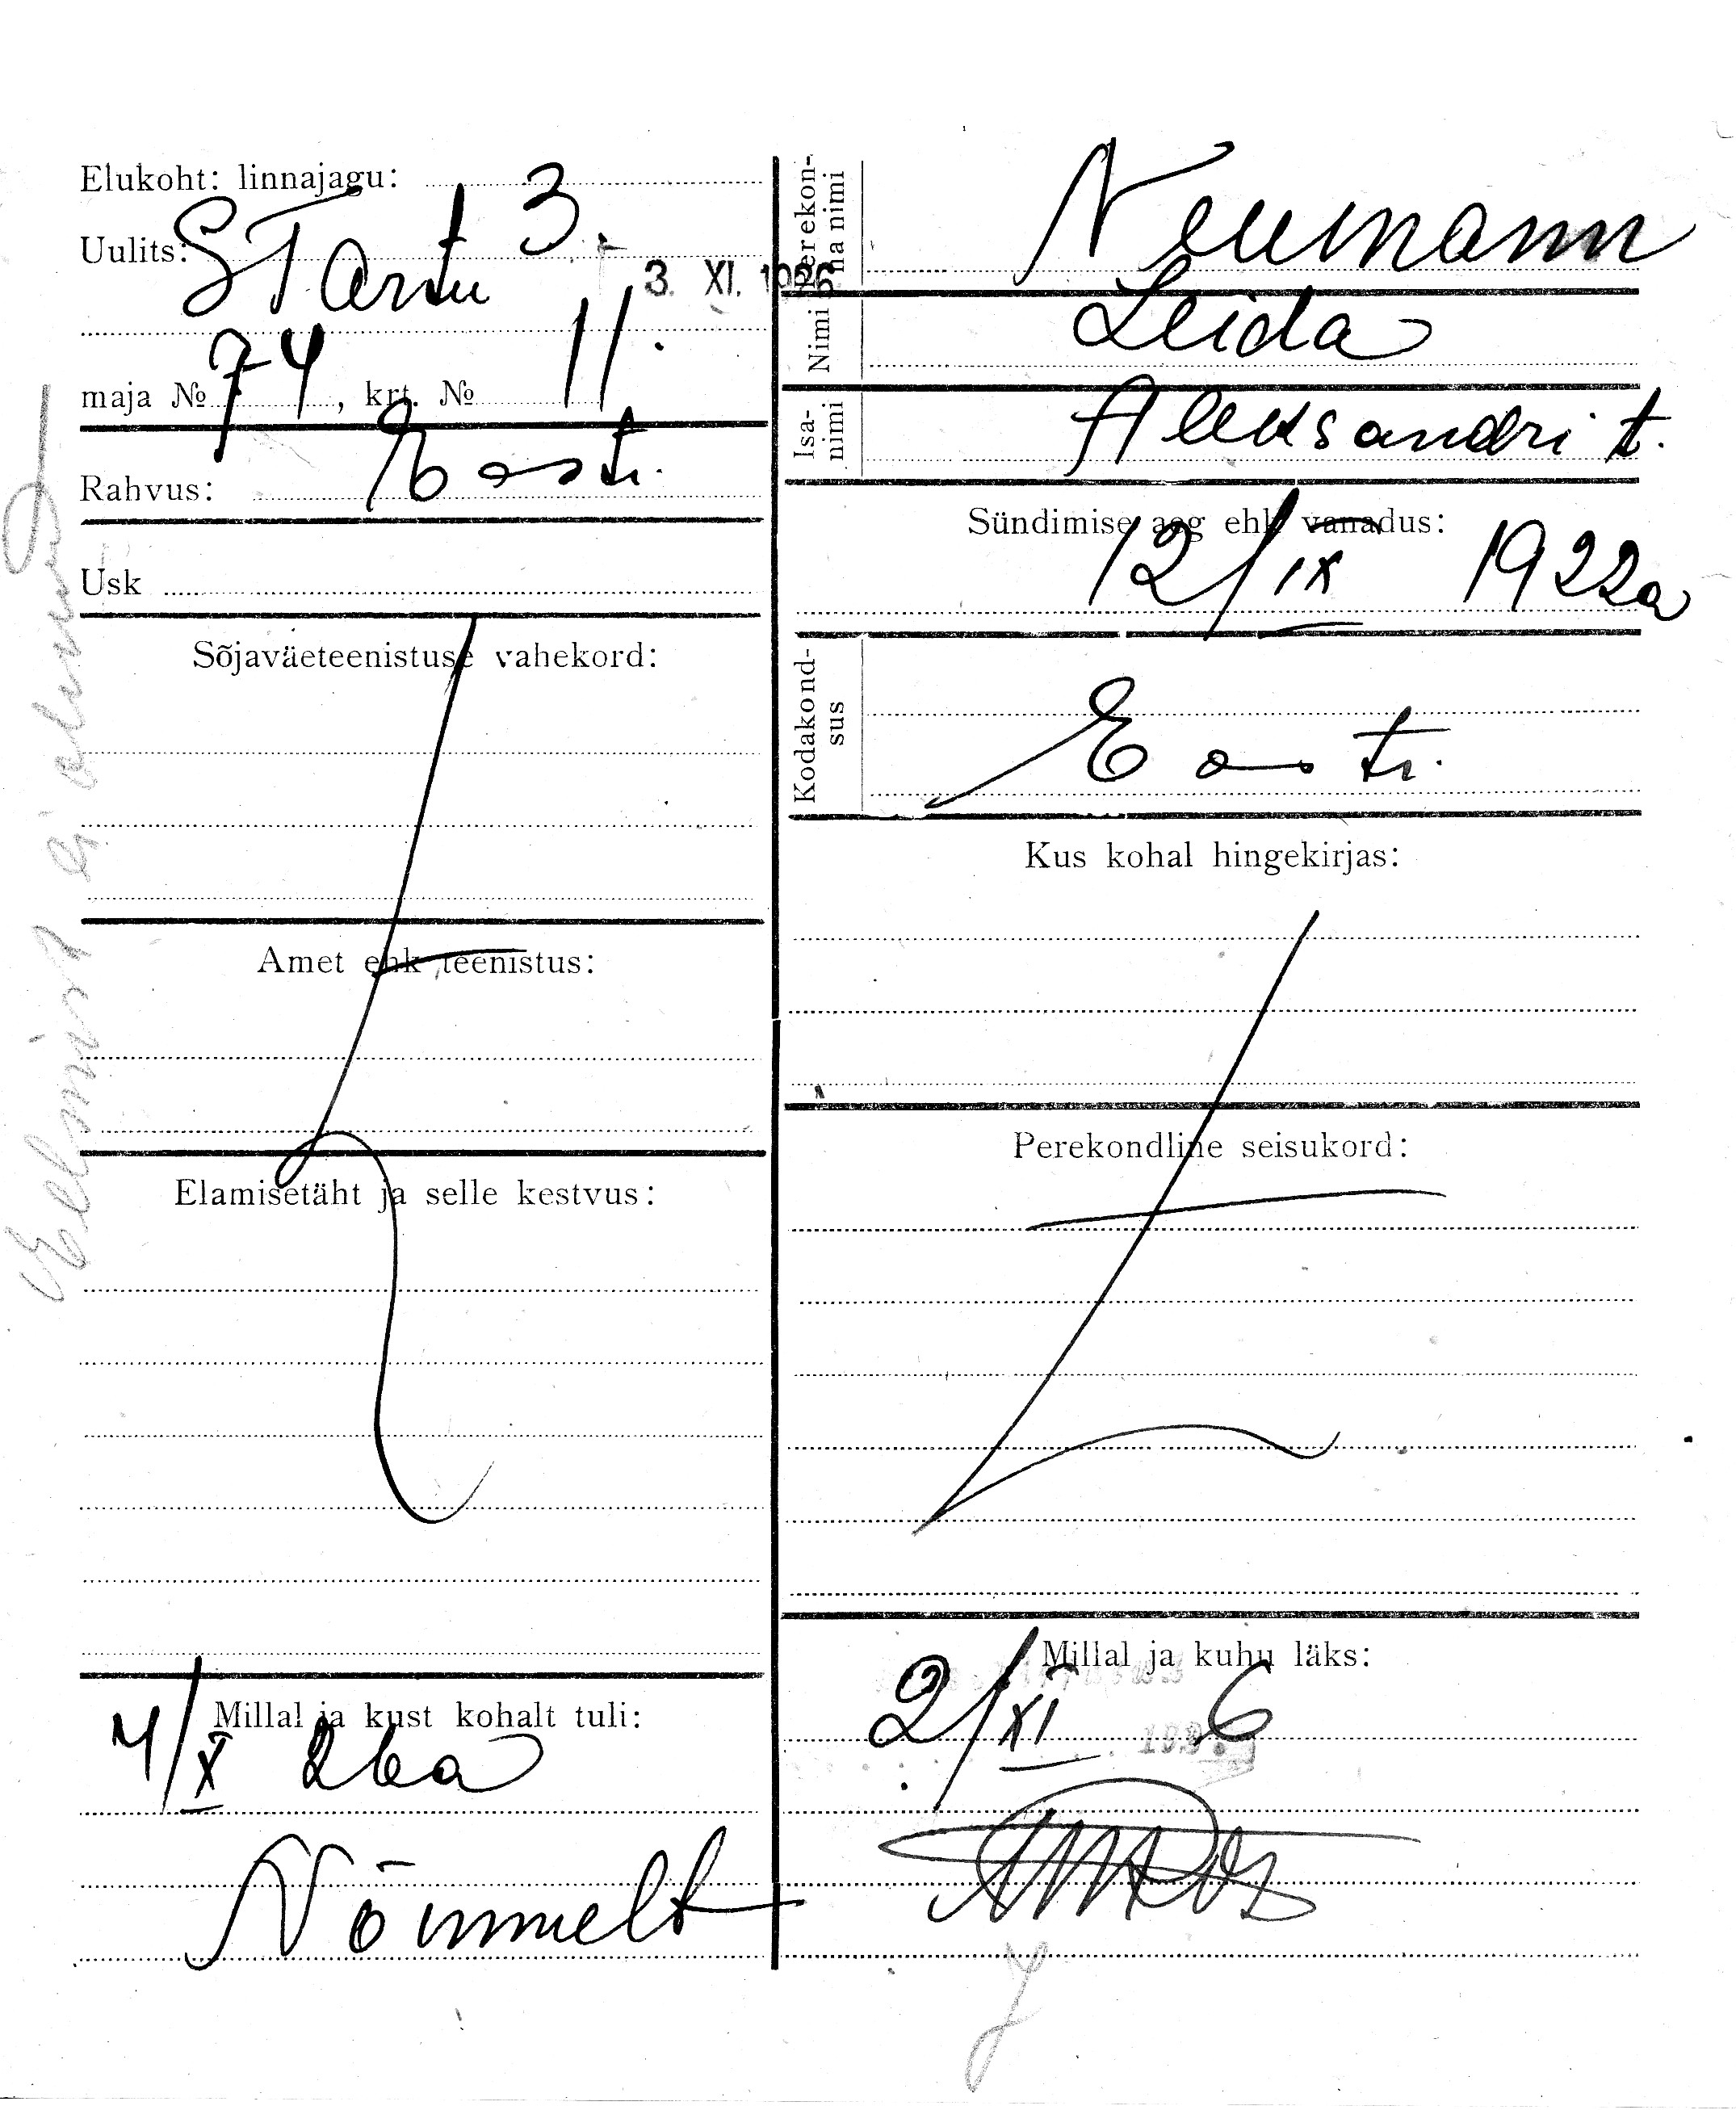 Elukoht: linnajagu: 3.
Uulits: S Tartu
3. XI. 1926
maja № 74, krt. № 11.
Rahvus: Eesti.
Usk
Sõjaväeteenistuse vahekord:
Amet ehk teenistus:
Elamisetäht ja selle kestvus:
Millal ja kust kohalt tuli:
4/X 26a
Nõmmelt
Perekon-
na nimi
Neumann
Nimi
Leida
Isa-
nimi
Aleksandri t.
Sündimise aeg ehk vanadus:
12/IX 1922a
Kodakond-
sus
Eesti.
Kus kohal hingekirjas:
Perekondline seisukord:
Millal ja kuhu läks:
2/XI 6
Eelmist ei olnud